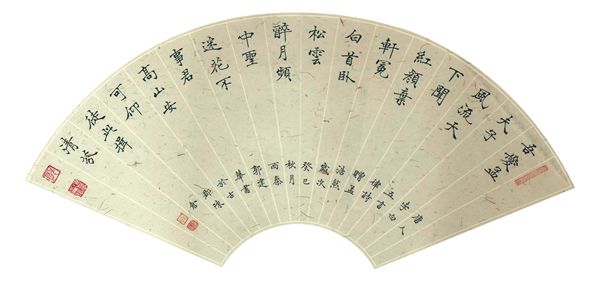 吾愛孟
夫子
風流天
下聞
紅顏棄
軒冕
白首臥
松雲
醉月頻
中聖
迷花不
事君
高山安
可仰
徒此揖
清芬
唐人
李白
五言
律詩
贈孟
浩然
歲次
癸巳
秋月
秦
郭
書
於古
陵